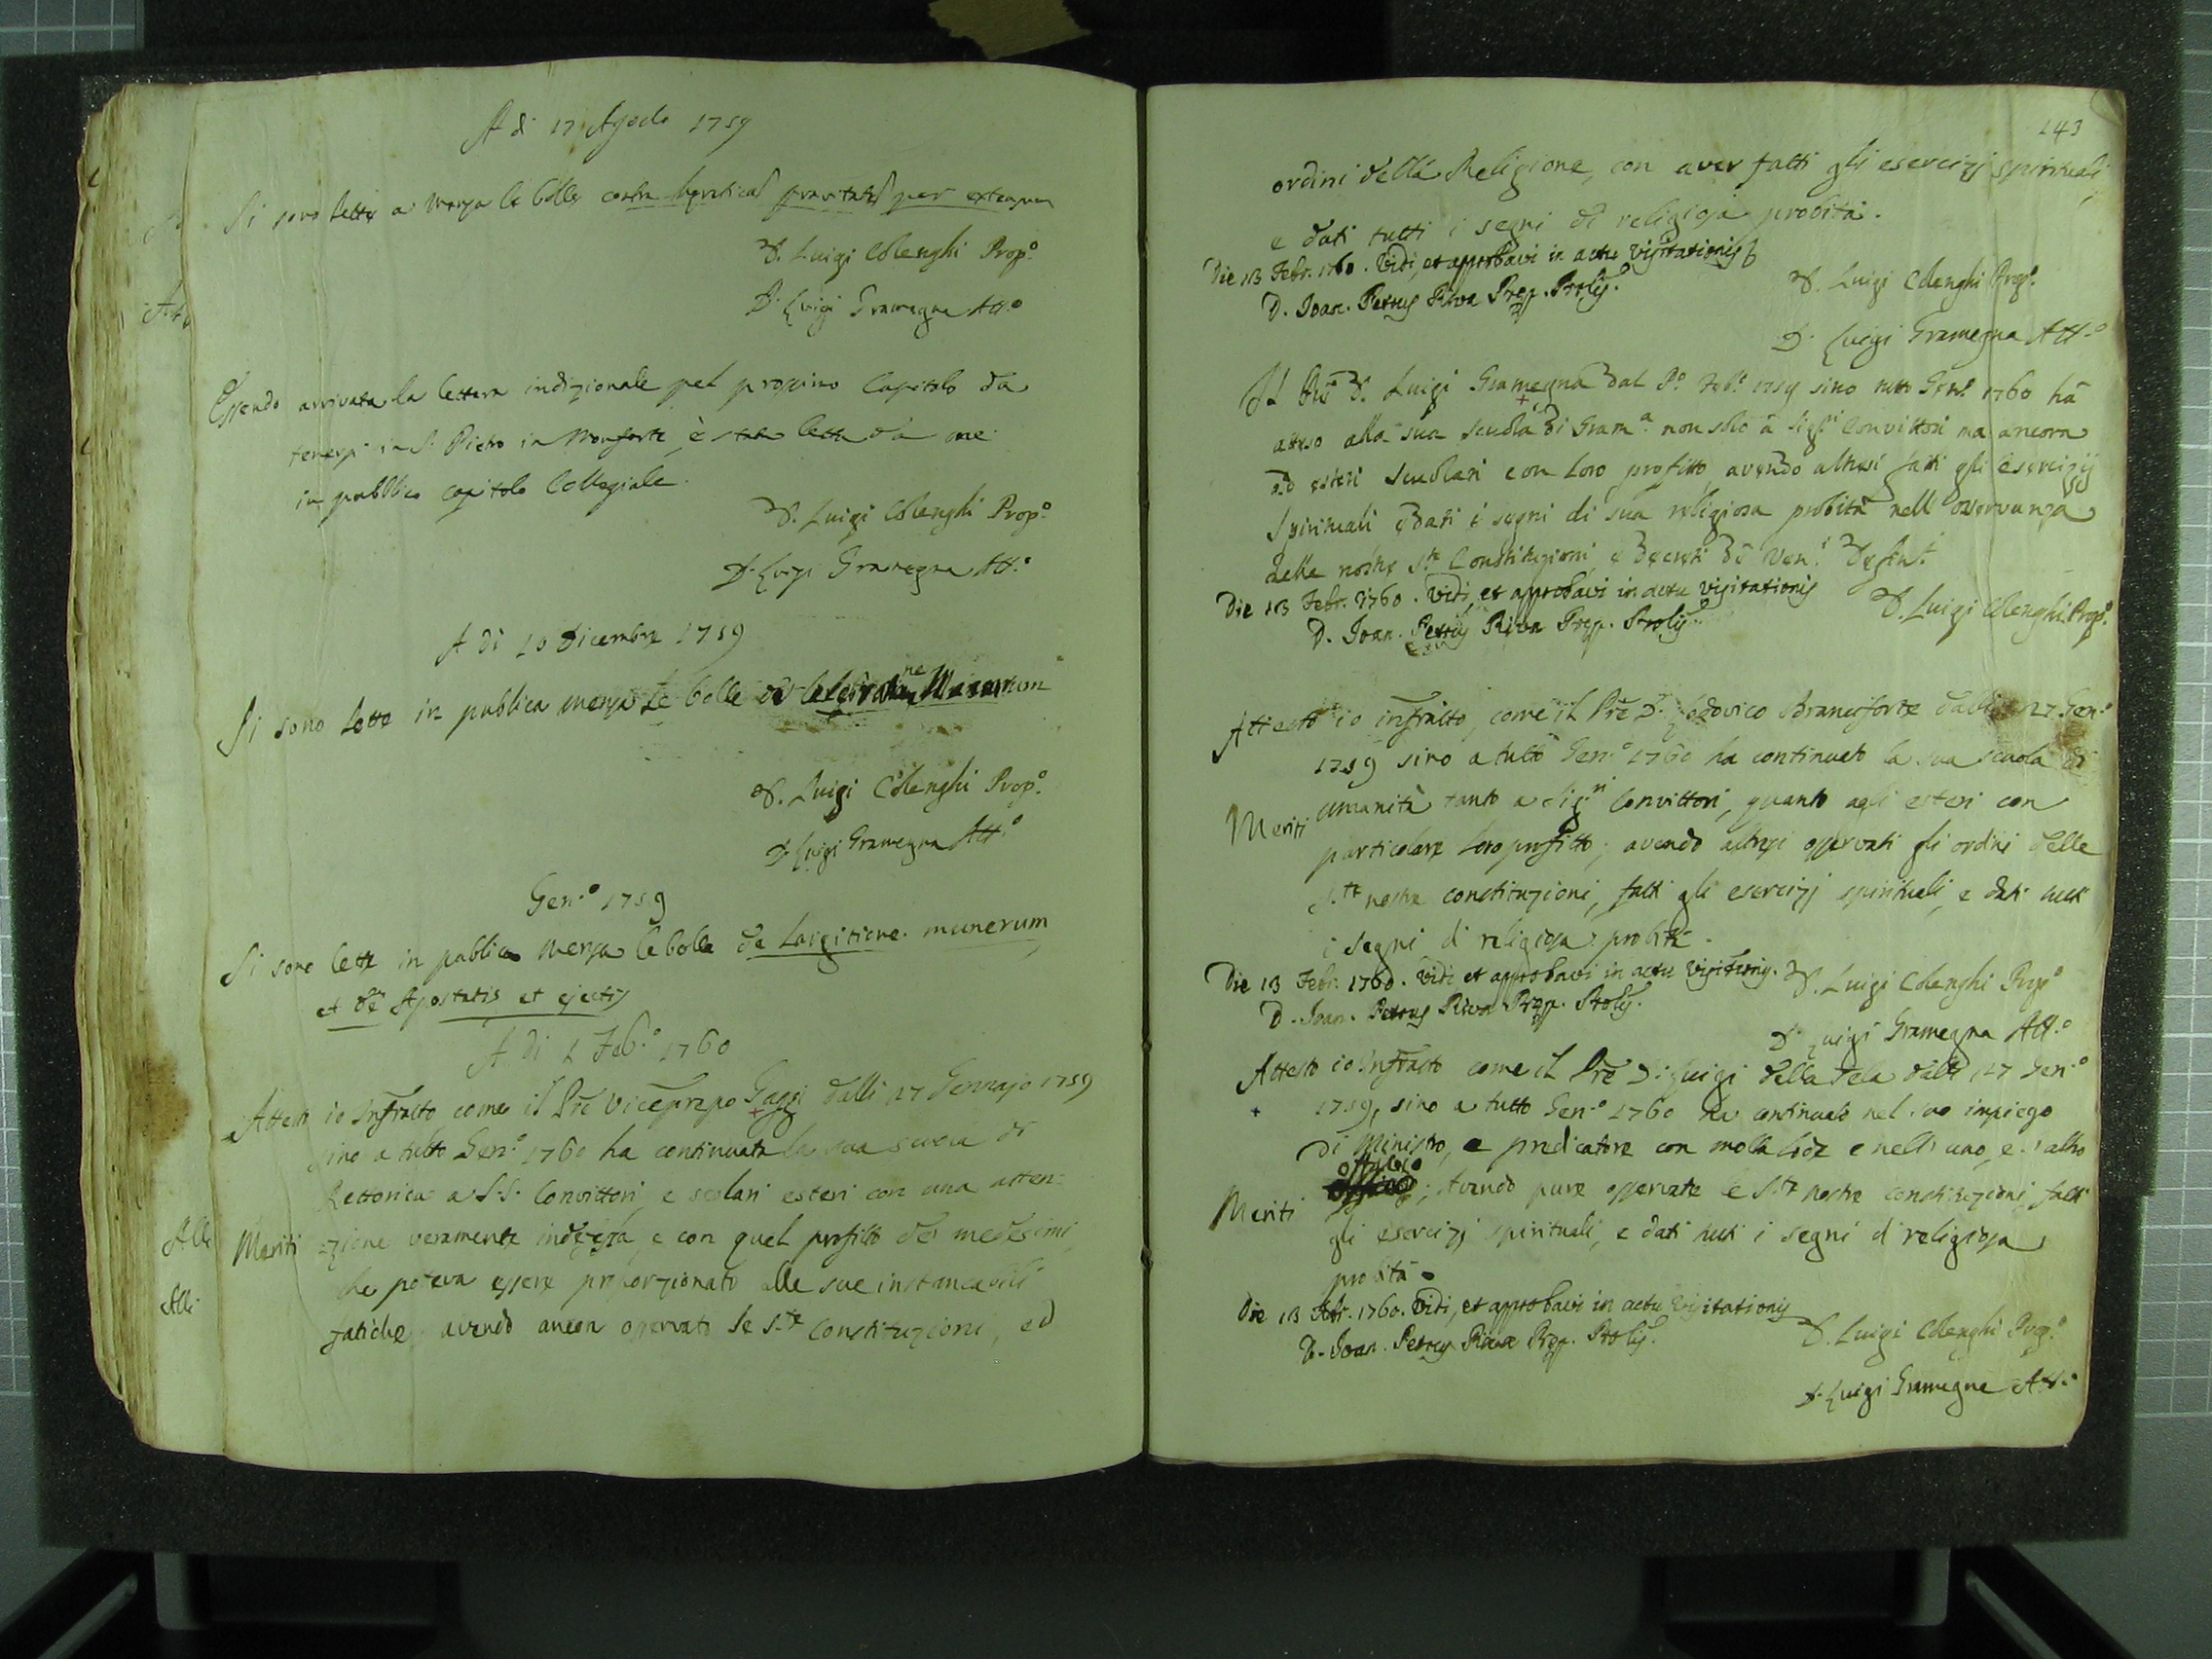 A dì 17 Agosto 1759
Si sono lette a mensa le bolle contra hereticas pravitates per extensum
D. Luigi Prop.o
D. Luigi Gramegna Att.o
Essendo arrivata la lettera indizionale pel prossimo Capitolo da
tenersi in S. Pietro in Monforte, è stata letta da me
in pubblico capitolo Collegiale.
D. Luigi Prop.o
D. Luigi Gramegna Att.o
A dì 10 Dicembre 1759
Si sono lette in publica mensa le bolle de
D. Luigi Prop.o
D. Luigi Gramegna Att.o
Gen.o 1759
Si sono lette in publica mensa le bolle de Largitione munerum
et de Apostatis et ejectis
A dì 1 Feb.o 1760
Attesto io Infratto come il Pre Viceprepo Gaggi dalli 27 Gennajo 1759
sino a tutto Gen.o 1760 ha continuata la sua scuola di
Rettorica a S.S. Convittori, e scolari esteri con una atten=
Meriti zione veramente indefessa, e con quel profitto dei medesimi,
che poteva essere proporzionato alle sue instancabili
fatiche, avendo ancora osservato le S.te Constituzioni, ed
143
ordini della Religione, con aver fatti gli esercizj spirituali,
e dati tutti i segni di religiosa probità.
Die 13 Febr. 1760. Vidi, et approbavi in actu Visitationis
D. Joan. Petrus Riva Prep. Prolis.
D. Luigi Prop.o
D. Luigi Gramegna Att.o
Il Pre D. Luigi Gramegna dal P.o Feb.o 1759 sino tutto Gen.o 1760 ha
atteso alla sua scuola di Gram.a non solo a Sig.ri Convittori ma ancora
ad esteri Scuolari con loro profitto, avendo altresì fatti gli esercizij
Spirituali e dati i segni di sua religiosa probità nell'osservanza
delle nostre S.te Constituzioni, e decreti de Ven.i
Die 13 Febr. 1760. Vidi, et approbavi in actu visitationis
D. Joan. Petrus Riva Prep. Prolis.
D. Luigi Prop.o
Attesto io infratto, come il Pre D. Lodovico Branciforte dalli 27 Gen.o
1759 sino a tutto Gen.o 1760 ha continuato la sua scuola di
umanità tanto a Sig.ri Convittori, quanto agli esteri con
Meriti particolare loro profitto; avendo altresì osservati gli ordini delle
S.te nostre constituzioni, fatti gli esercizj spirituali, e dati tutti
i segni di religiosa probità.
Die 13 Febr. 1760. Vidi et approbavi in actu Visitationis.
D. Joan. Petrus Riva Prep. Prolis.
D. Luigi Prop.o
D. Luigi Gramegna Att.o
Attesto io Infratto come il Pre D. Luigi della Tela dalli 27 Gen.o
1759, sino a tutto Gen.o 1760 ha continuato nel suo impiego
di Ministro, e predicatore con molta lode e nell'uno, e l'altro
officio; Avendo pure osservate le S.te nostre constituzioni, fatti
Meriti gli esercizj spirituali, e dati tutti i segni di religiosa
probità.
Die 13 Febr. 1760. Vidi, et approbavi in actu Visitationis
D. Joan. Petrus Riva Prep. Prolis.
D. Luigi Prop.o
D. Luigi Gramegna Att.o